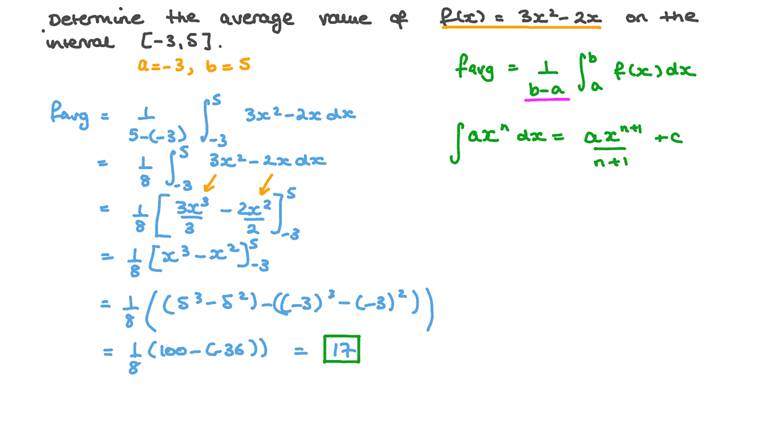 Determine the average value of f(x) = 3x² - 2x on the
interval [-3, 5].
a = -3, b = 5
favg = 1/(b-a) ∫_a^b f(x) dx
∫ axⁿ dx = axⁿ⁺¹/(n+1) + c
favg = 1/(5-(-3)) ∫_-3^5 3x² - 2x dx
= 1/8 ∫_-3^5 3x² - 2x dx
= 1/8 [3x³/3 - 2x²/2]_-3^5
= 1/8 [x³ - x²]_-3^5
= 1/8 ((5³ - 5²) - ((-3)³ - (-3)²))
= 1/8 (100 - (-36)) = 17